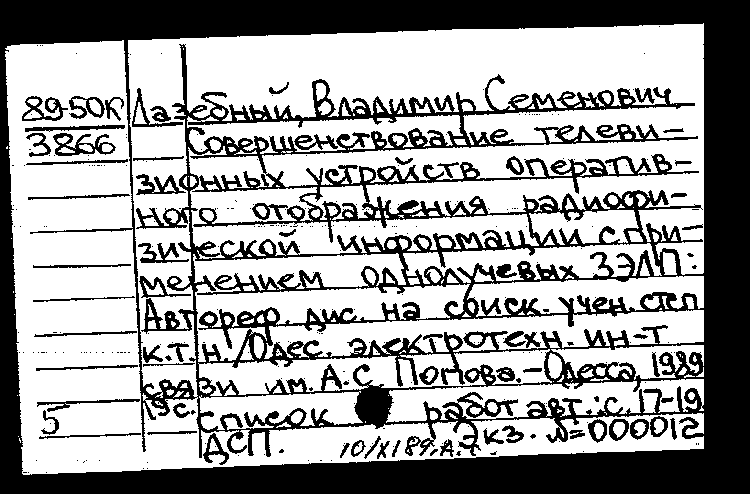 89-50К Лазебный, Владимир Семенович.
3866 Совершенствование телеви-
зионных устройств оператив-
ного отображения радиофи-
зической информации с при-
менением однолучевых ЗЭЛП:
Автореф. дис. на соиск. учен. степ
к.т.н. /Одес. электротехн. ин-т
связи им. А.С Попова. - Одесса, 1989
19 с.
5 список работ авт.: с. 17-19
ДСП. 10/XI89. Экз. №=000012